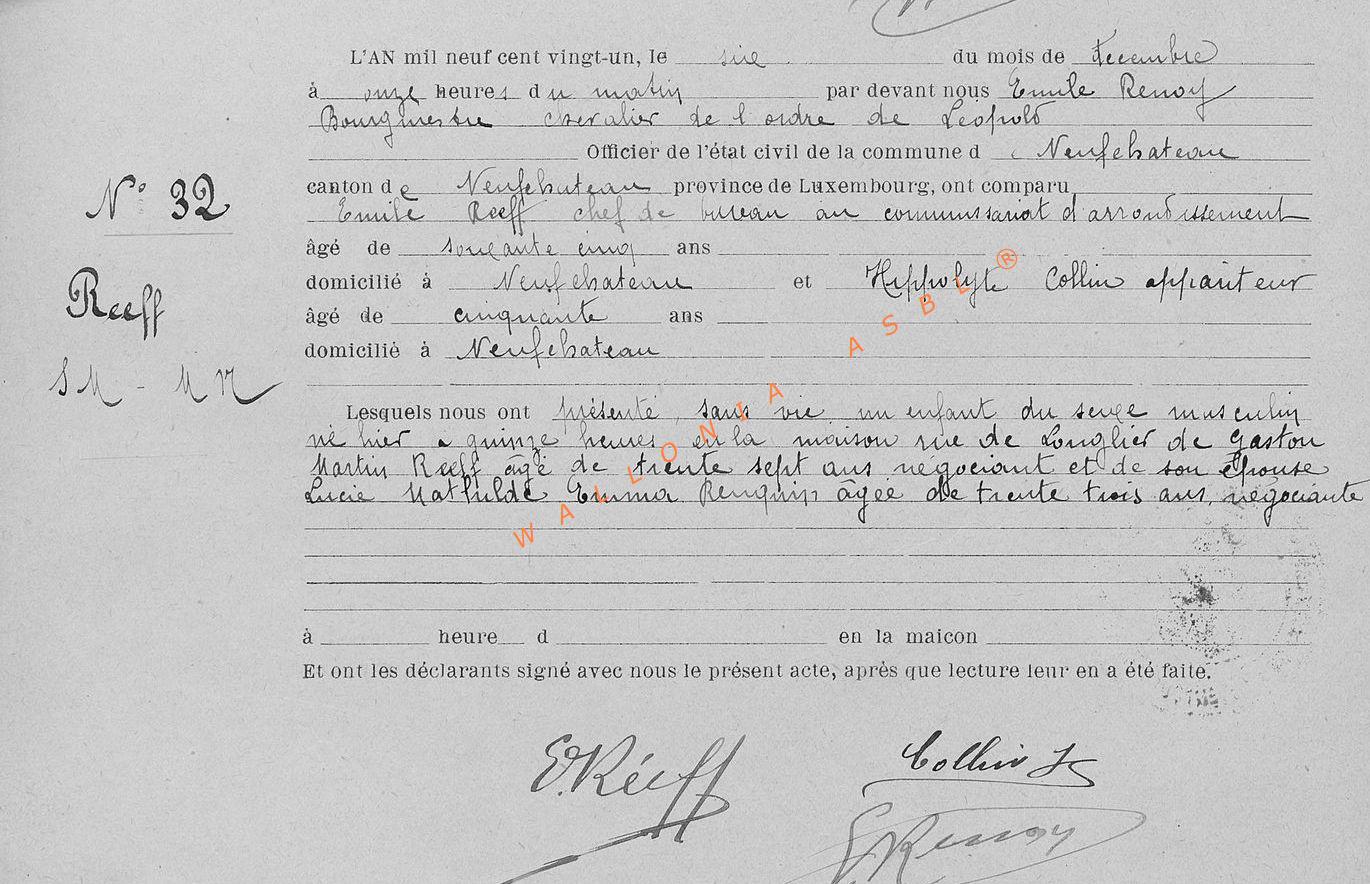 L'AN mil neuf cent vingt-un, le sixe du mois de décembre
à onze heures du matin par devant nous Emile Renoy
Bourgmestre chevalier de l'ordre de Léopold
Officier de l'état civil de la commune de Neufchateau
N° 32
canton de Neufchateau province de Luxembourg, ont comparu
Emile Reeff chef de bureau au commissariat d'arrondissement
âgé de soixante cinq ans
Reeff
domicilié à Neufchateau et Hippolyte Collin appariteur
âgé de cinquante ans
domicilié à Neufchateau
SM - MN
Lesquels nous ont présenté, sans vie, un enfant du sexe masculin
né hier a quinze heures en la maison rue de Longlier de Gaston
Martin Reeff âgé de trente sept ans négociant et de son épouse
Lucie Mathilde Emma Renquin âgée de trente trois ans, négociante
à heure d en la maicon
Et ont les déclarants signé avec nous le présent acte, après que lecture leur en a été faite.
E. Réeff
Collin H
E. Renoy
WALLONIA ASBL ®